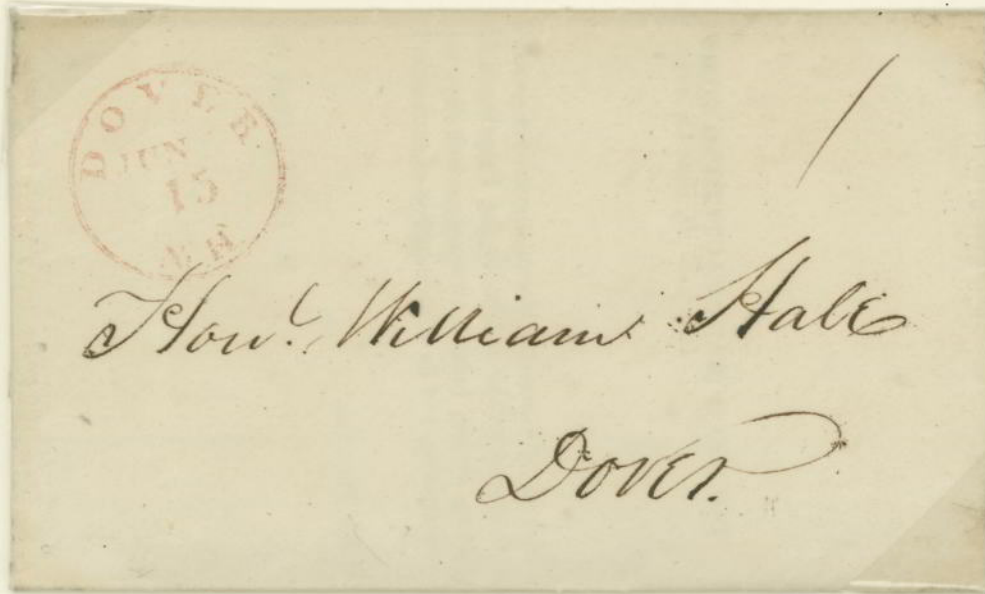 DOVER.
JUN
15
N.H
Hon.l William Hale
Dover.